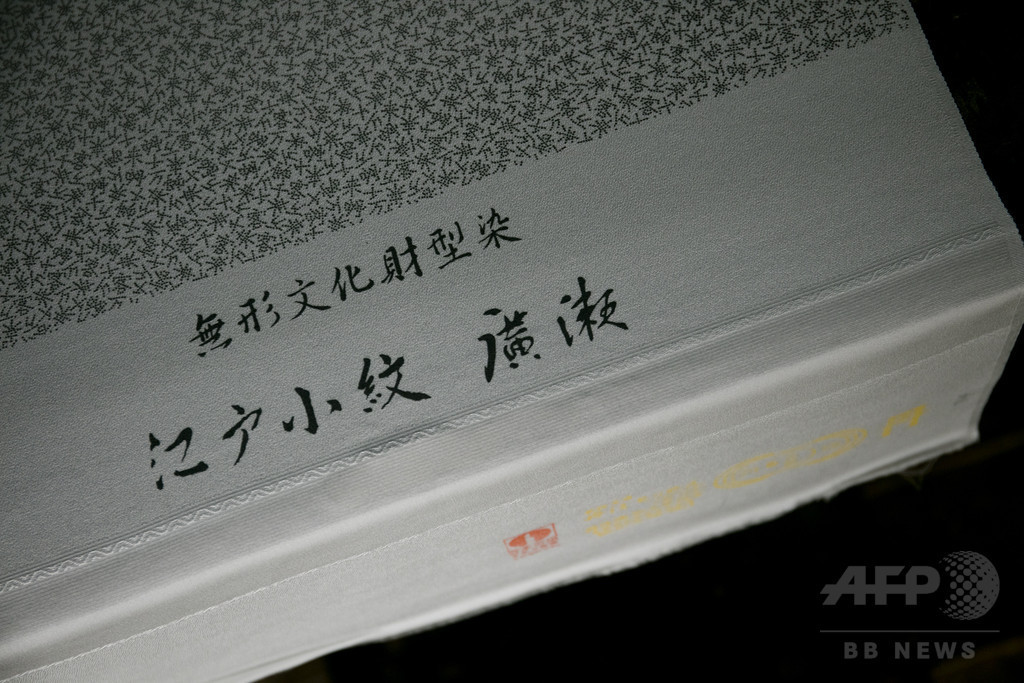 無形文化財型染
江戸小紋 廣瀬
AFP
BB NEWS